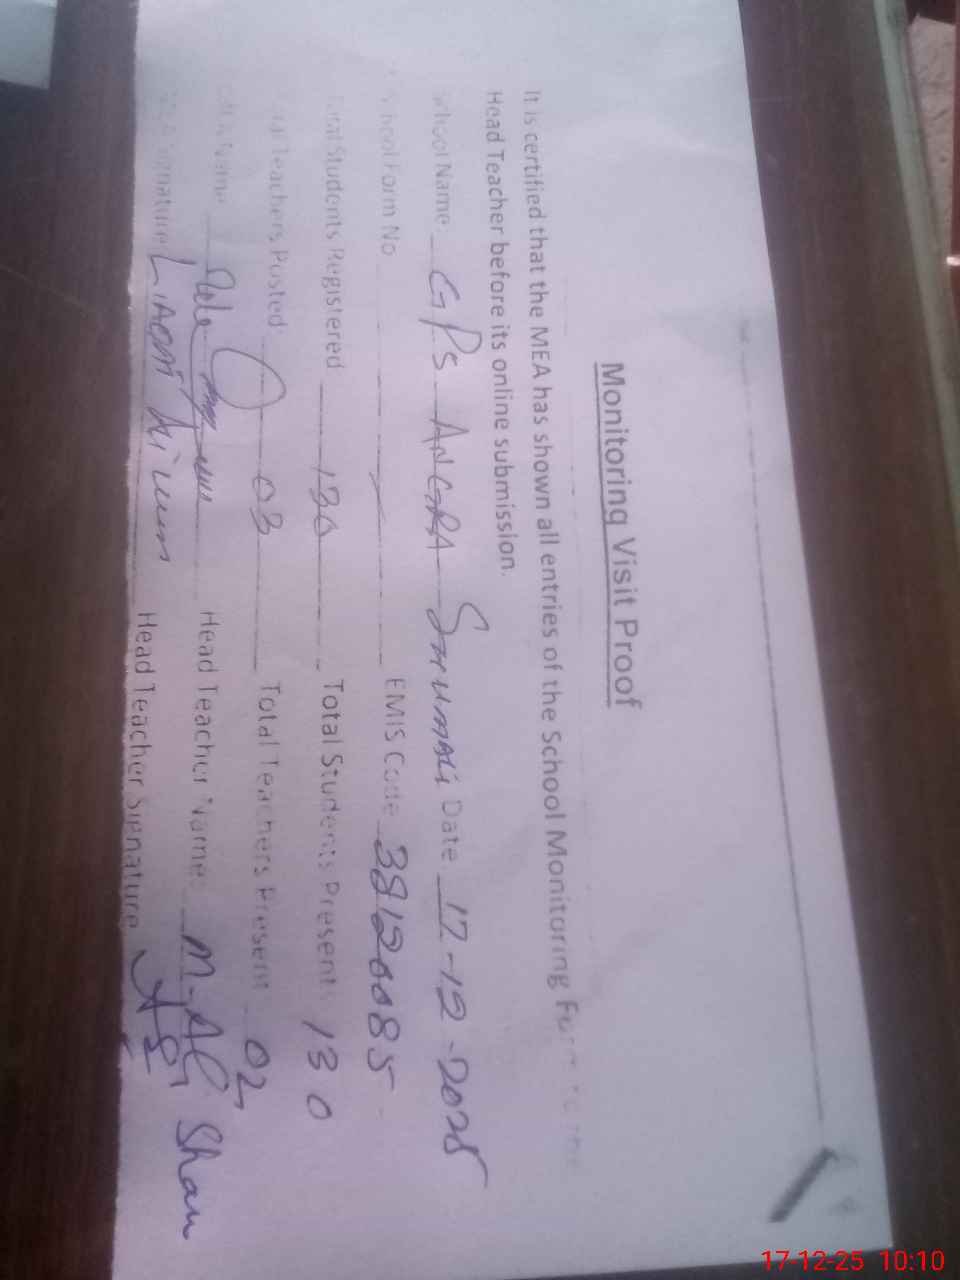 Monitoring Visit Proof
It is certified that the MEA has shown all entries of the School Monitoring Form to the
Head Teacher before its online submission.
School Name GPS ANGRA Date 17-12-2025
School Form No EMIS Code 38120085
Total Students Registered 130 Total Students Present 130
Total Teachers Posted 03 Total Teachers Present 02
MEA Name Head Teacher Name M. Ali Shan
MEA Signature Head Teacher Signature
17-12-25 10:10